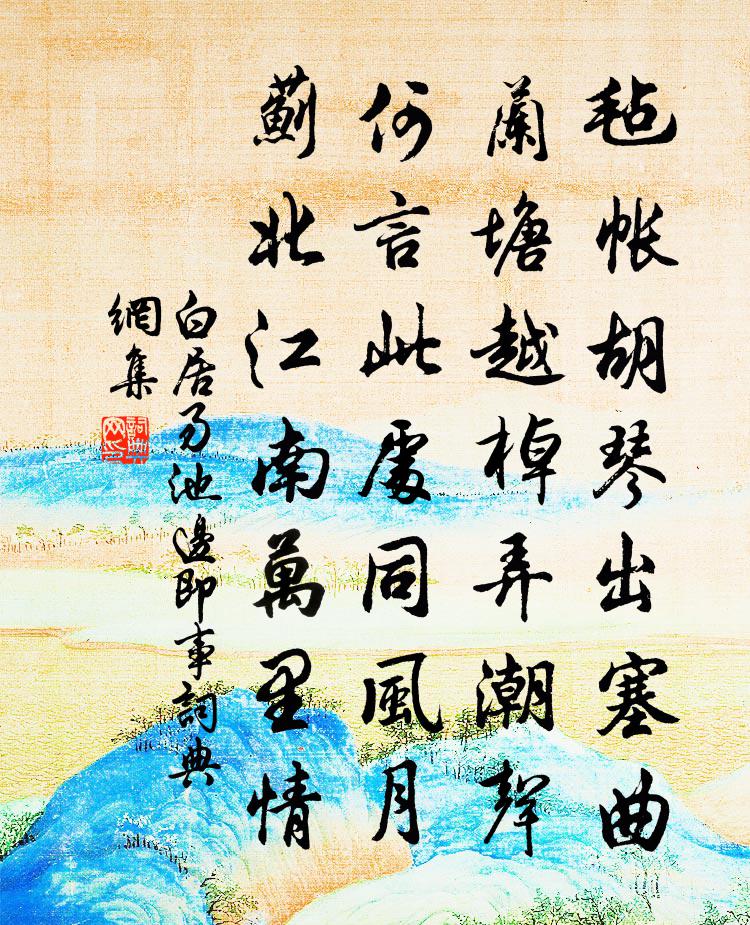 氈帳胡琴出塞曲
蘭塘越棹弄潮聲
何言此處同風月
薊北江南萬里情
白居易池邊即事詞典
網集